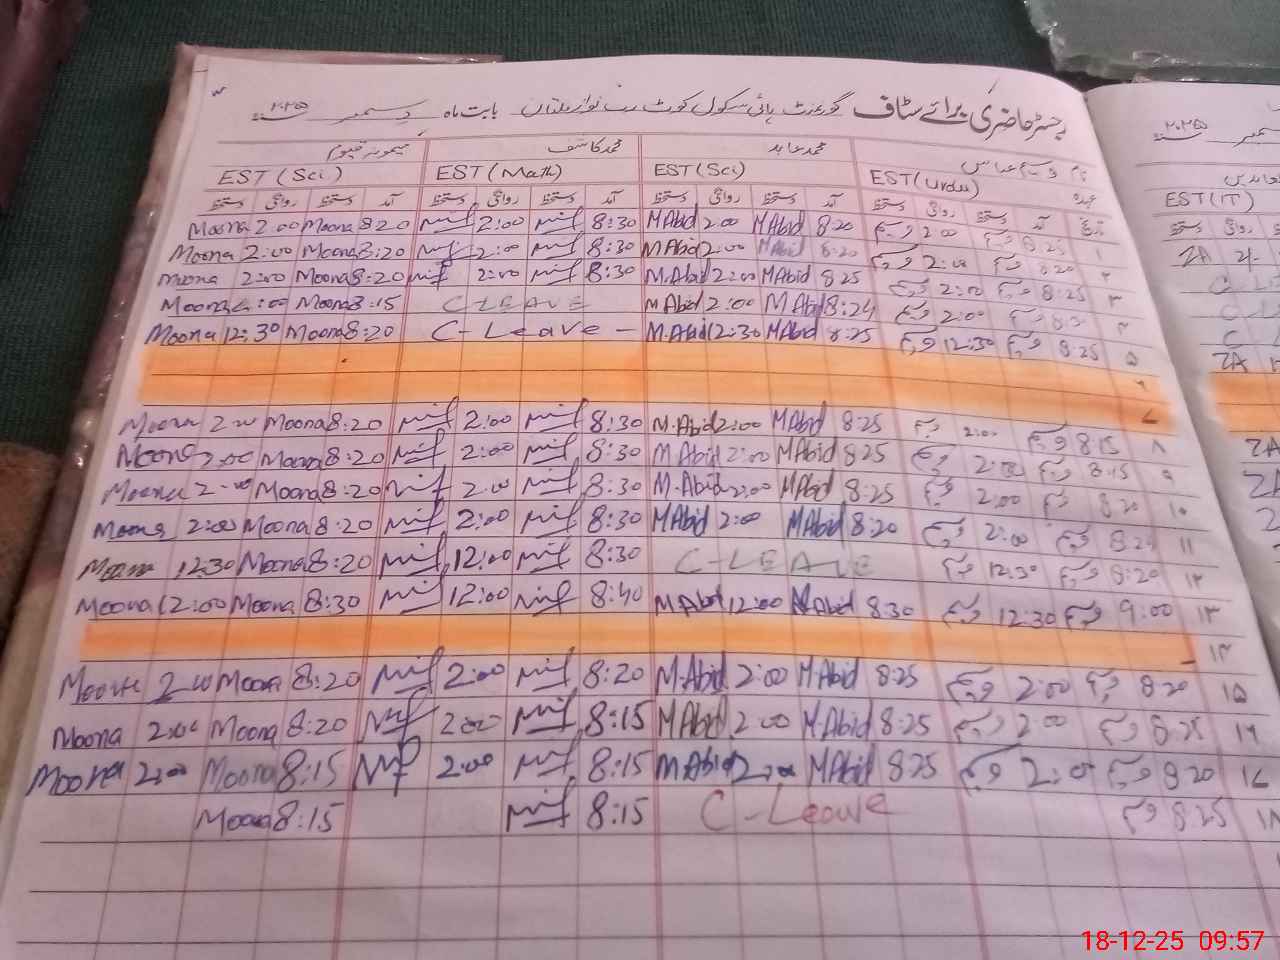 رجسٹر حاضری برائے سٹاف گورنمنٹ ہائی سکول کوٹ رب نواز ملتان بابت ماہ دسمبر ۲۰۲۵
دسمبر ۲۰۲۵
نام وسیم عباس محمد عابد محمد کاشف میمونہ قیوم
عہدہ EST(Urdu) EST(Sci) EST(Math) EST(Sci)
EST(IT)
تاریخ آمد دستخط روانگی دستخط آمد دستخط روانگی دستخط آمد دستخط روانگی دستخط آمد دستخط روانگی دستخط
Moona 2:00 Moona 8:20 2:00 8:30 MAbid 2:00 MAbid 8:20 2:00 8:25 ۱
Moona 2:00 Moona 8:20 2:00 8:30 MAbid 2:00 MAbid 8:20 2:00 8:20 ۲
Moona 2:00 Moona 8:20 2:00 8:30 M.Abid 2:00 MAbid 8:25 2:00 8:25 ۳
Moona 2:00 Moona 8:15 C-LEAVE MAbid 2:00 MAbid 8:24 2:00 8:30 ۴
Moona 12:30 Moona 8:20 C-Leave - M.Abid 12:30 MAbid 8:25 12:30 8:25 ۵
۶
۷
Moona 2:00 Moona 8:20 2:00 8:30 M.Abid 2:00 MAbid 8:25 2:00 8:15 ۸
Moona 2:00 Moona 8:20 2:00 8:30 MAbid 2:00 MAbid 8:25 2:00 8:15 ۹
Moona 2:00 Moona 8:20 2:00 8:30 M-Abid 2:00 MAbid 8:25 2:00 8:20 ۱۰
Moona 2:00 Moona 8:20 2:00 8:30 MAbid 2:00 MAbid 8:20 2:00 ۱۱
Moona 12:30 Moona 8:20 12:00 8:30 C-LEAVE 12:30 8:20 ۱۲
Moona 12:00 Moona 8:30 12:00 8:40 MAbid 12:00 MAbid 8:30 12:30 9:00 ۱۳
۱۴
Moona 2:00 Moona 8:20 2:00 8:20 M.Abid 2:00 MAbid 8:25 2:00 8:20 ۱۵
Moona 2:00 Moona 8:20 2:00 8:15 MAbid 2:00 M.Abid 8:25 2:00 8:25 ۱۶
Moona 2:00 Moona 8:15 2:00 8:15 MAbid 2:00 MAbid 8:25 2:00 8:20 ۱۷
Moona 8:15 8:15 C-Leave 8:25 ۱۸
18-12-25 09:57